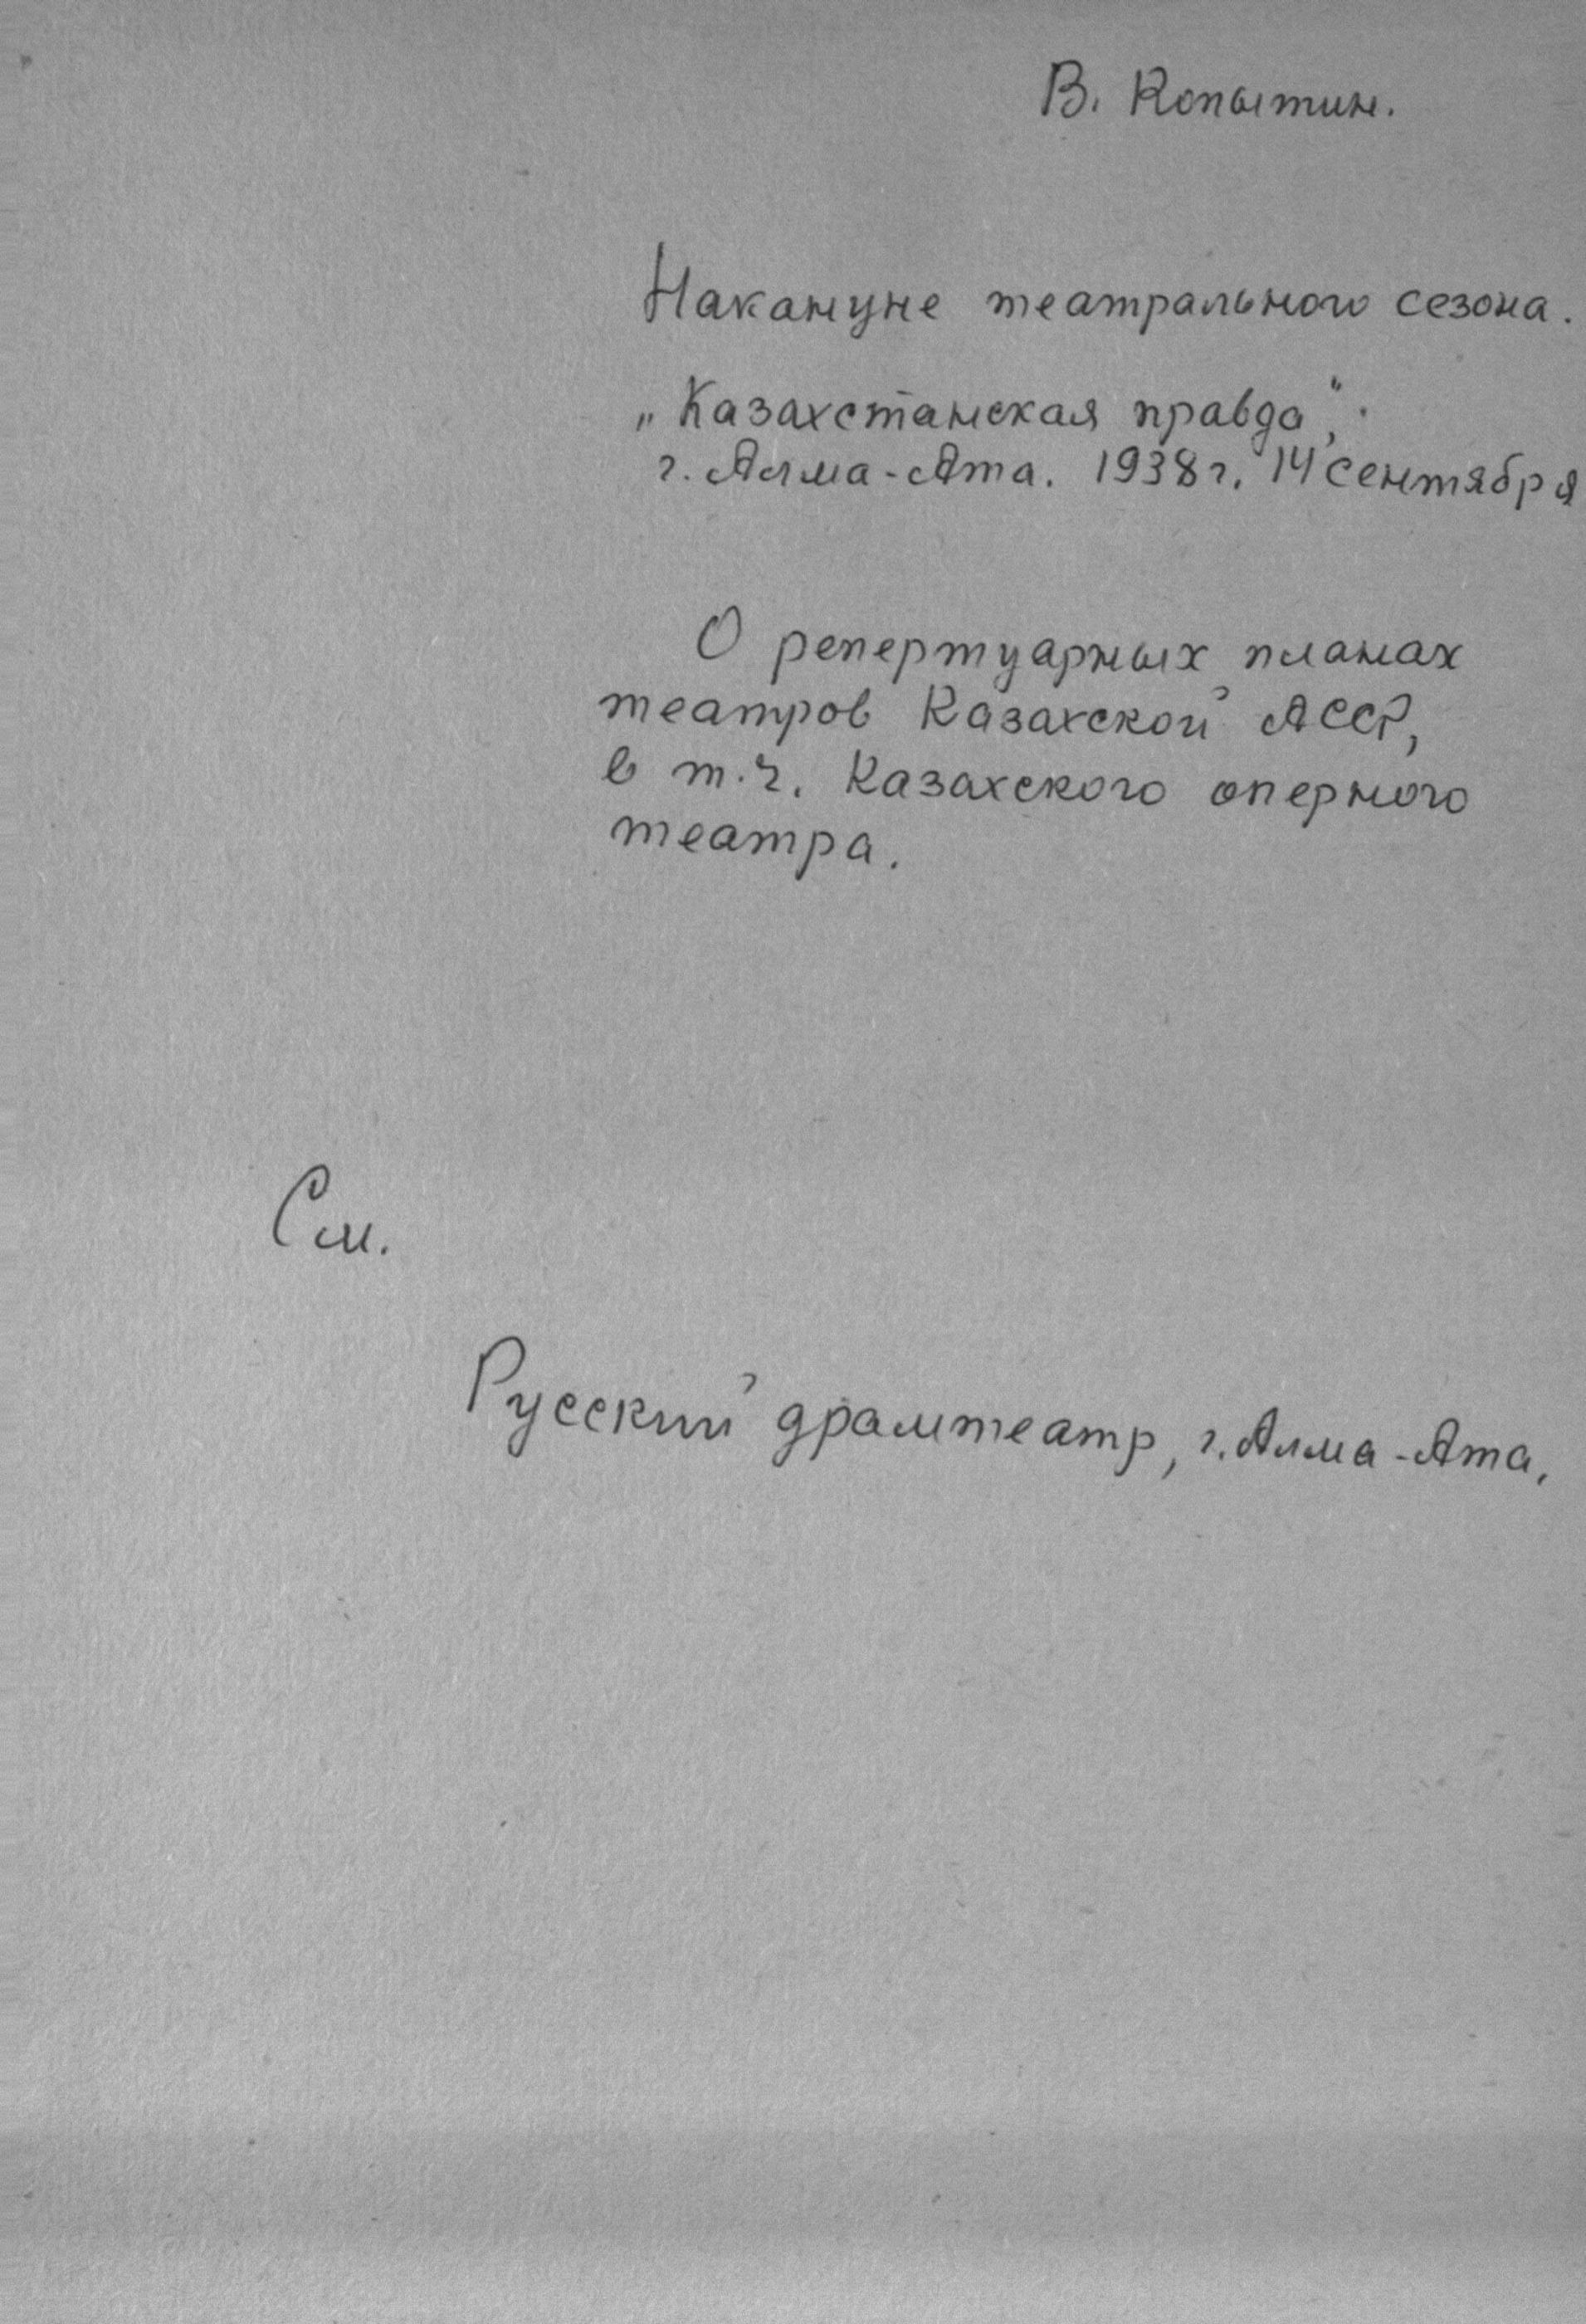 В. Копытин.
Накануне театрального сезона.
„Казахстанская правда“,.
г. Алма-Ата. 1938 г. 14 сентября
О репертуарных планах
театров Казахской АССР,
в т.ч. Казахского оперного
театра.
См.
Русский драмтеатр, г. Алма-Ата,